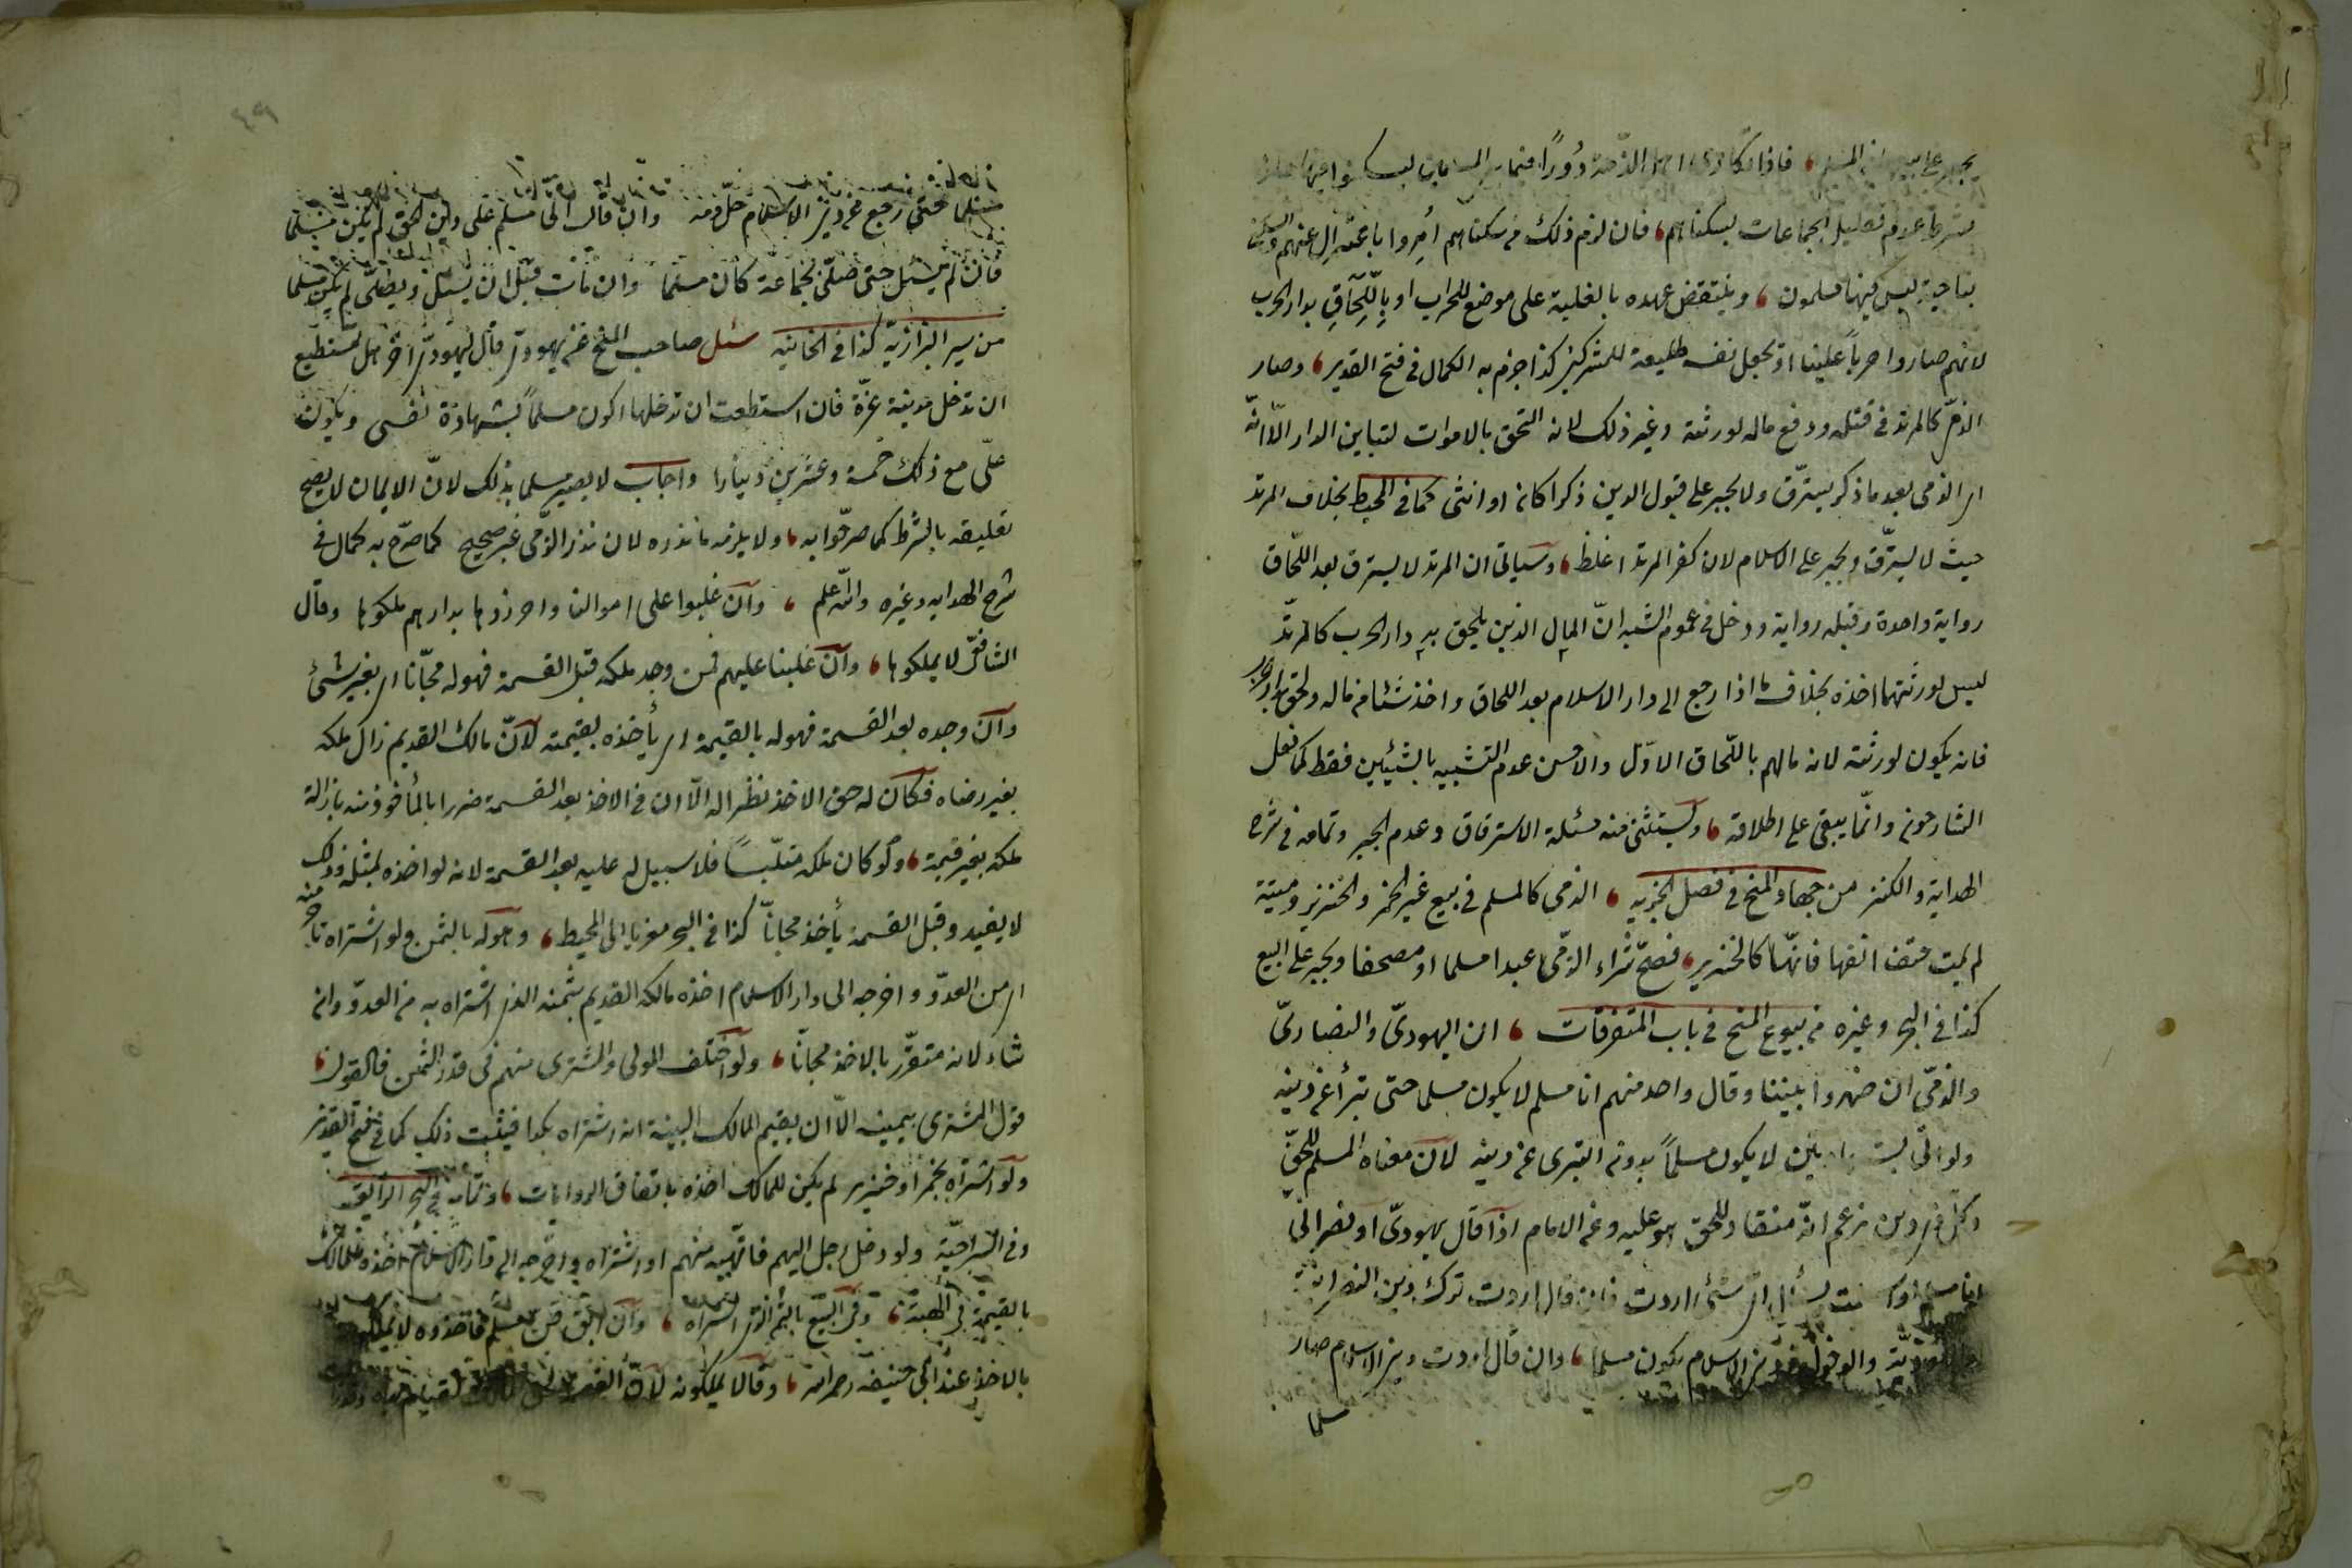 يجبر على بيعها من المسلم، فاذا تكارى اهل الذمة دورا فيما بين المسلمين ليسكنوا فيها جاز
بشرط عدم تقليل الجماعات بسكناهم، فان لزم ذلك من سكناهم أمروا باعتزال عنهم والسكنى
بناحية ليس فيها مسلمون، وينتقض عهده بالغلبة على موضع للحراب او باللحاق بدار الحرب
لانهم صاروا حربا علينا او يجعل نفسه طليعة للمشركين كذا جزم به الكمال في فتح القدير، وصار
الذمى كالمرتد في قتله ودفع ماله لورثته وغير ذلك لانه التحق بالاموات لتباين الدار الّا انّه
اى الذمى بعد ما ذكر يسترّق ولا يجبر على قبول الدين ذكرا كان او انثى كما في المحيط بخلاف المرتد
حيث لا يسترّق ويجبر على الاسلام لان كفر المرتد اغلظ، وسياتى ان المرتد لا يسترق بعد اللّحاق
رواية واحدة وقبله رواية ودخل في عموم الشبه انّ المال الذين يلحق به دار الحرب كالمرتدّ
ليس لورثتهما اخذه بخلاف ما اذا رجع الى دار الاسلام بعد اللحاق واخذ شئا من ماله ولحق بدار الحرب
فانه يكون لورثته لانه مالهم باللّحاق الاوّل والاحسن عدم التشبيه بالشيئين فقط كما فعل
الشارحون وانّما يبقى على اطلاقه، ويستثنى منه مسئلة الاسترقاق وعدم الجبر وتمامه في شرح
الهداية والكنز من جهاد المنح في فصل الجزية، الذمى كالمسلم في بيع غير الخمر والخنزير وميتة
لم يمت حتف انفها فانهّا كالخنزير، فصحّ شراء الذمّى عبدا مسلما او مصحفا ويجبر على البيع
كذا في البحر وغيره من بيوع المنح في باب المتفرقات، ان اليهودىّ والنصارىّ
والذمّى ان ظهروا بيننا وقال واحد منهم انا مسلم لا يكون مسلما حتى تبرأ عن دينه
ولو انّى لا يكون مسلماً بدون التبرى عن دينه لانّ معناه المسلم للحقّ
وكل ذى دين زعم انّه منقاد للحق هو عليه وعن الامام اذا قال يهودىّ او نصرانى
انا مسلم او اسلمت يسأل اىّ شئ اردت فان قال اردت ترك دين النصرانية
واليهوديّة والدخول في دين الاسلام يكون مسلما، وان قال اردت دين الاسلام صار
مسلما
مسلما حتى رجع عن دين الاسلام حلّ دمه وان قال انى مسلم على دين الحق لم يكن مسلما
فان لم يسئل حتى صلّى بجماعة كان مسلما وان مات قبل ان يسئل ويصلّى لم يكن مسلما
من سير البزازيّة كذا في الخانيه سئل صاحب المنح عن يهودىّ قال ليهودىّ آخر هل تستطيع
ان تدخل مدينة غزّة فان استطعت ان تدخلها اكون مسلماً بشهادة نفسى ويكون
علّى مع ذلك خمسة وعشرين دينارا واجاب لا يصير مسلما بذلك لانّ الايمان لا يصح
تعليقه بالشرط كما صرحوا به، ولا يلزمه ما نذره لان نذر الذمّى غير صحيح كما صرّح به كمال في
شرح الهدايه وغيره والله اعلم، وان غلبوا على اموالنا واحرزوها بدارهم ملكوها وقال
الشافعّى لا يملكوها، وان غلبنا عليهم فمن وجد ملكه قبل القسمة فهو له مجّانا اى بغير شئ
وان وجده بعد القسمة فهو له بالقيمة اى يأخذه بقيمته لانّ مالك القديم زال ملكه
بغير رضاه فكان له حق الاخذ نظرا له الّا ان في الاخذ بعد القسمة ضررا بالمأخوذ منه بازالة
ملكه بغير قيمة، ولو كان ملكه مثليّاً فلا سبيل له عليه بعد القسمة لانه لو اخذه بمثله وذلك
لا يفيد وقبل القسمة يأخذ مجاناً كذا في البحر معزيا الى المحيط، وهو له بالثمن ولو اشتراه منه تاجر
اى من العدوّ واخرجه الى دار الاسلام اخذه مالكه القديم بثمنه الذى اشتراه به من العدوّ وان
شاء لانه متضرّر بالاخذ مجاناً، ولو اختلف المولى والمشترى منهم في قدر الثمن فالقول
قول المشترى بيمينه الّا ان يقيم المالك البينة انه اشتراه بكذا فيثبت ذلك كما في فتح القدير
ولو اشتراه بخمر او خنزير لم يكن للمالك اخذه باتفاق الروايات، وتمامه في البحر الرايق
وفي السراجيّة ولو دخل رجل اليهم فاتهبه منهم او اشتراه واخرجه الى دار الاسلام اخذه المالك
بالقيمة في الهبة، وفى البيع بالثمن الذى اشتراه، وان ابق قن مسلم فاخذوه لا يملكونه
بالاخذ عند ابى حنيفه رحمه الله، وقالا يملكونه لانّ العصمة لحق المالك لقيام يده